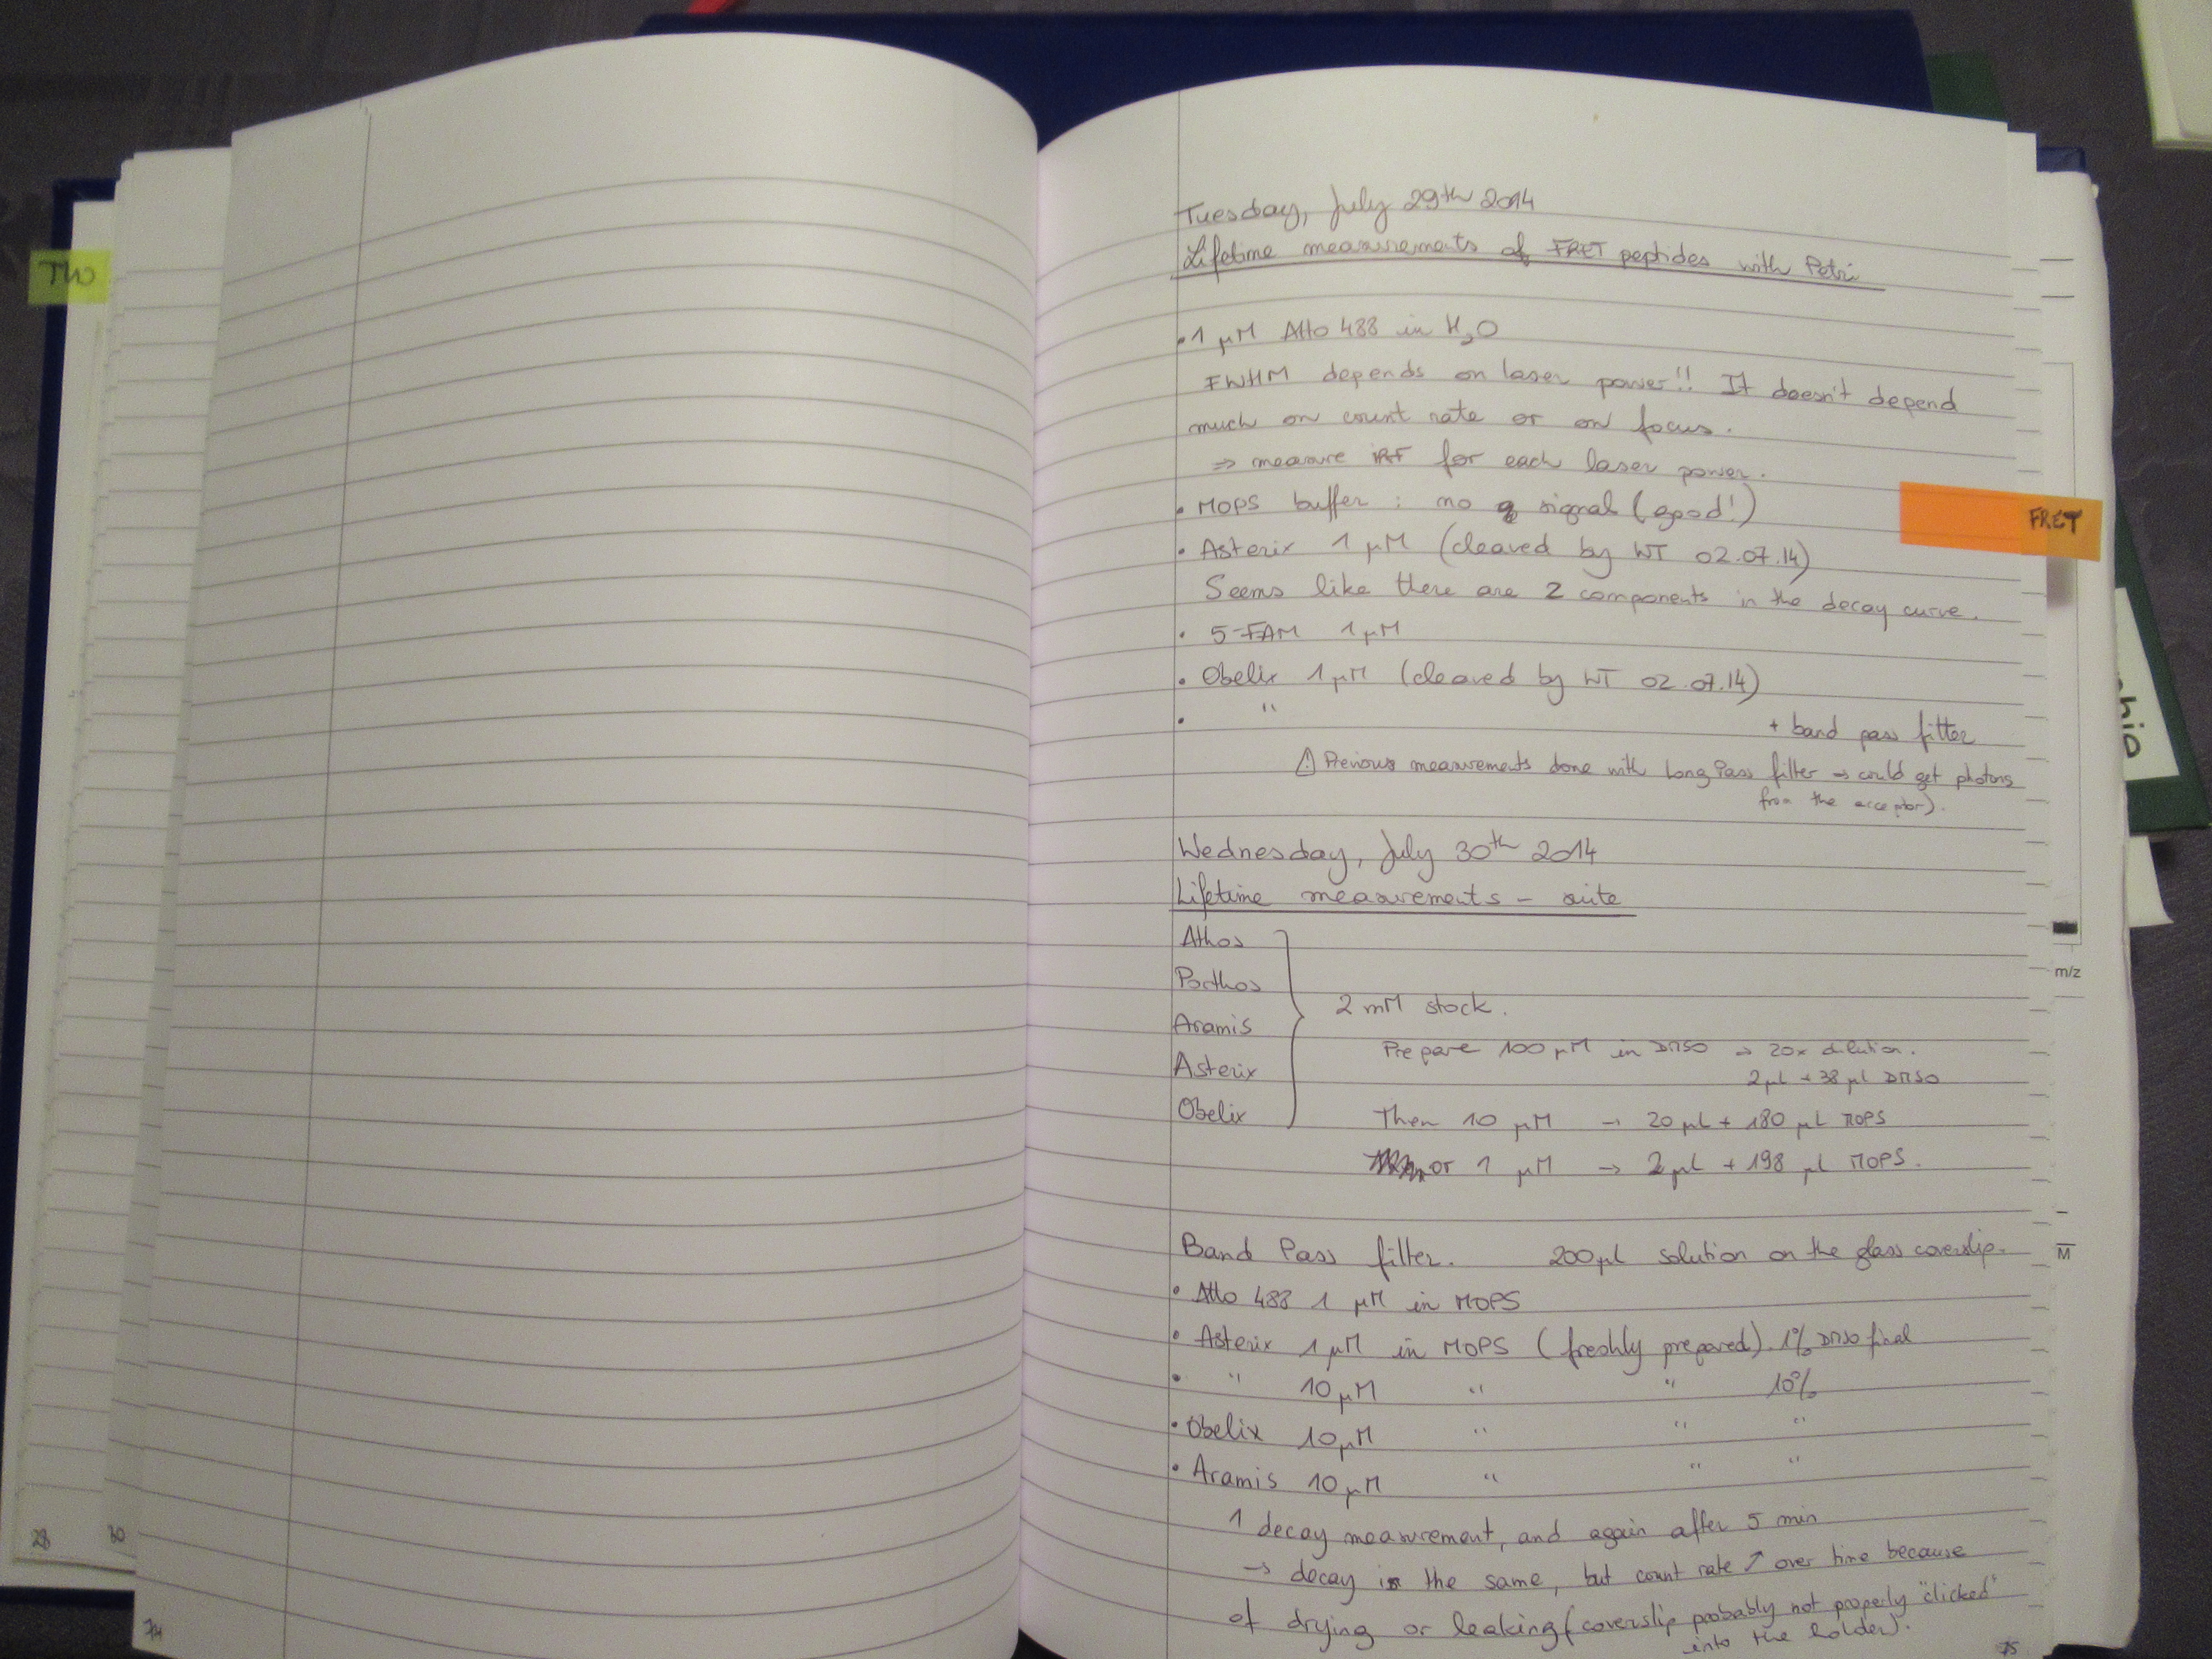 TWO
28
30
74
Tuesday, July 29th 2014
Lifetime measurements of FRET peptides with Petri
• 1 µM Atto 488 in H2O
FWHM depends on laser power!! It doesn't depend
much on count rate or on focus.
⇒ measure IRF for each laser power.
• MOPS buffer : no signal (good!)
• Asterix 1 µM (cleaved by WT 02.07.14)
Seems like there are 2 components in the decay curve.
• 5-FAM 1 µM
• Obelix 1 µM (cleaved by WT 02.07.14)
• " + band pass filter
⚠ Previous measurements done with Long Pass filter → could get photons
from the acceptor).
Wednesday, July 30th 2014
Lifetime measurements - suite
Athos
Porthos
Aramis
Asterix
Obelix
2 mM stock.
Prepare 100 µM in DMSO → 20x dilution.
2 µL + 38 µL DMSO
Then 10 µM → 20 µL + 180 µL MOPS
or 1 µM → 2 µL + 198 µL MOPS.
Band Pass filter. 200 µl solution on the glass coverslip.
• Atto 488 1 µM in MOPS
• Asterix 1 µM in MOPS (freshly prepared). 1% DMSO final
• " 10 µM " " 10%
• Obelix 10 µM " " "
• Aramis 10 µM " " "
1 decay measurement, and again after 5 min
→ decay is the same, but count rate ↗ over time because
of drying or leaking (coverslip probably not properly "clicked"
into the holder).
75
FRET
m/z
M